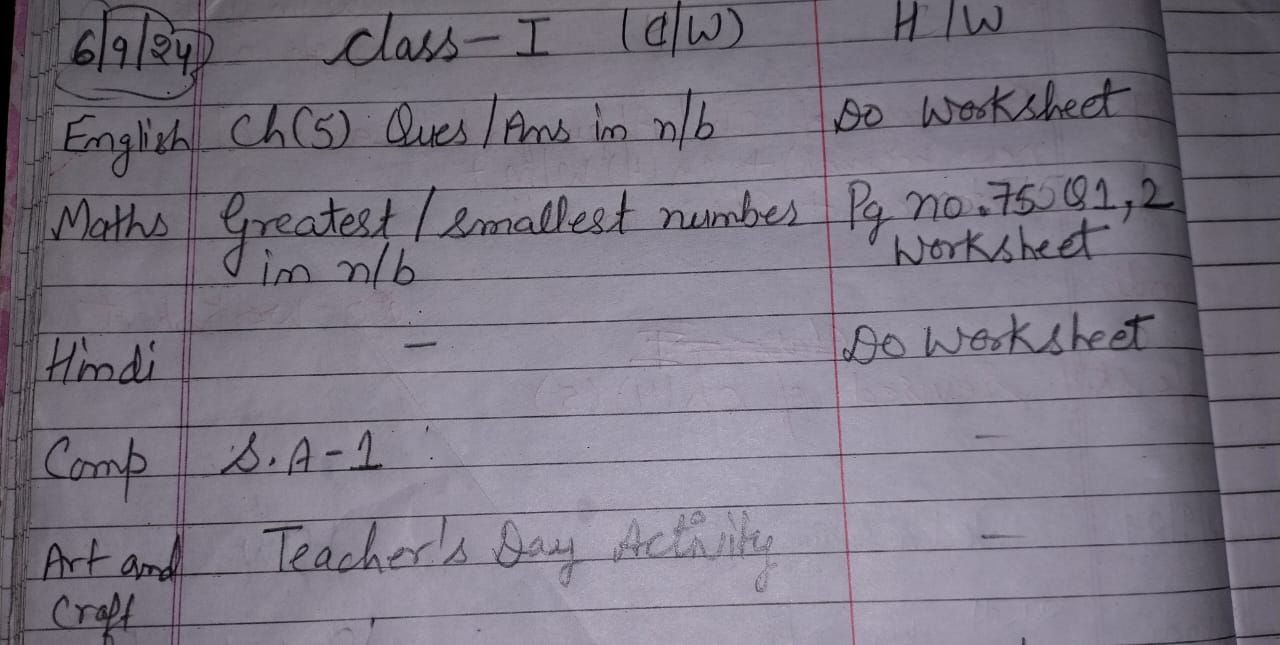 6/9/24 Class-I (C/W) H/W
English Ch(5) Ques/Ans in n/b Do Worksheet
Maths Greatest/smallest number Pg no.75 Q1,2
in n/b Worksheet
Hindi - Do Worksheet
Comp S.A-1 -
Art and Teacher's Day Activity -
Craft